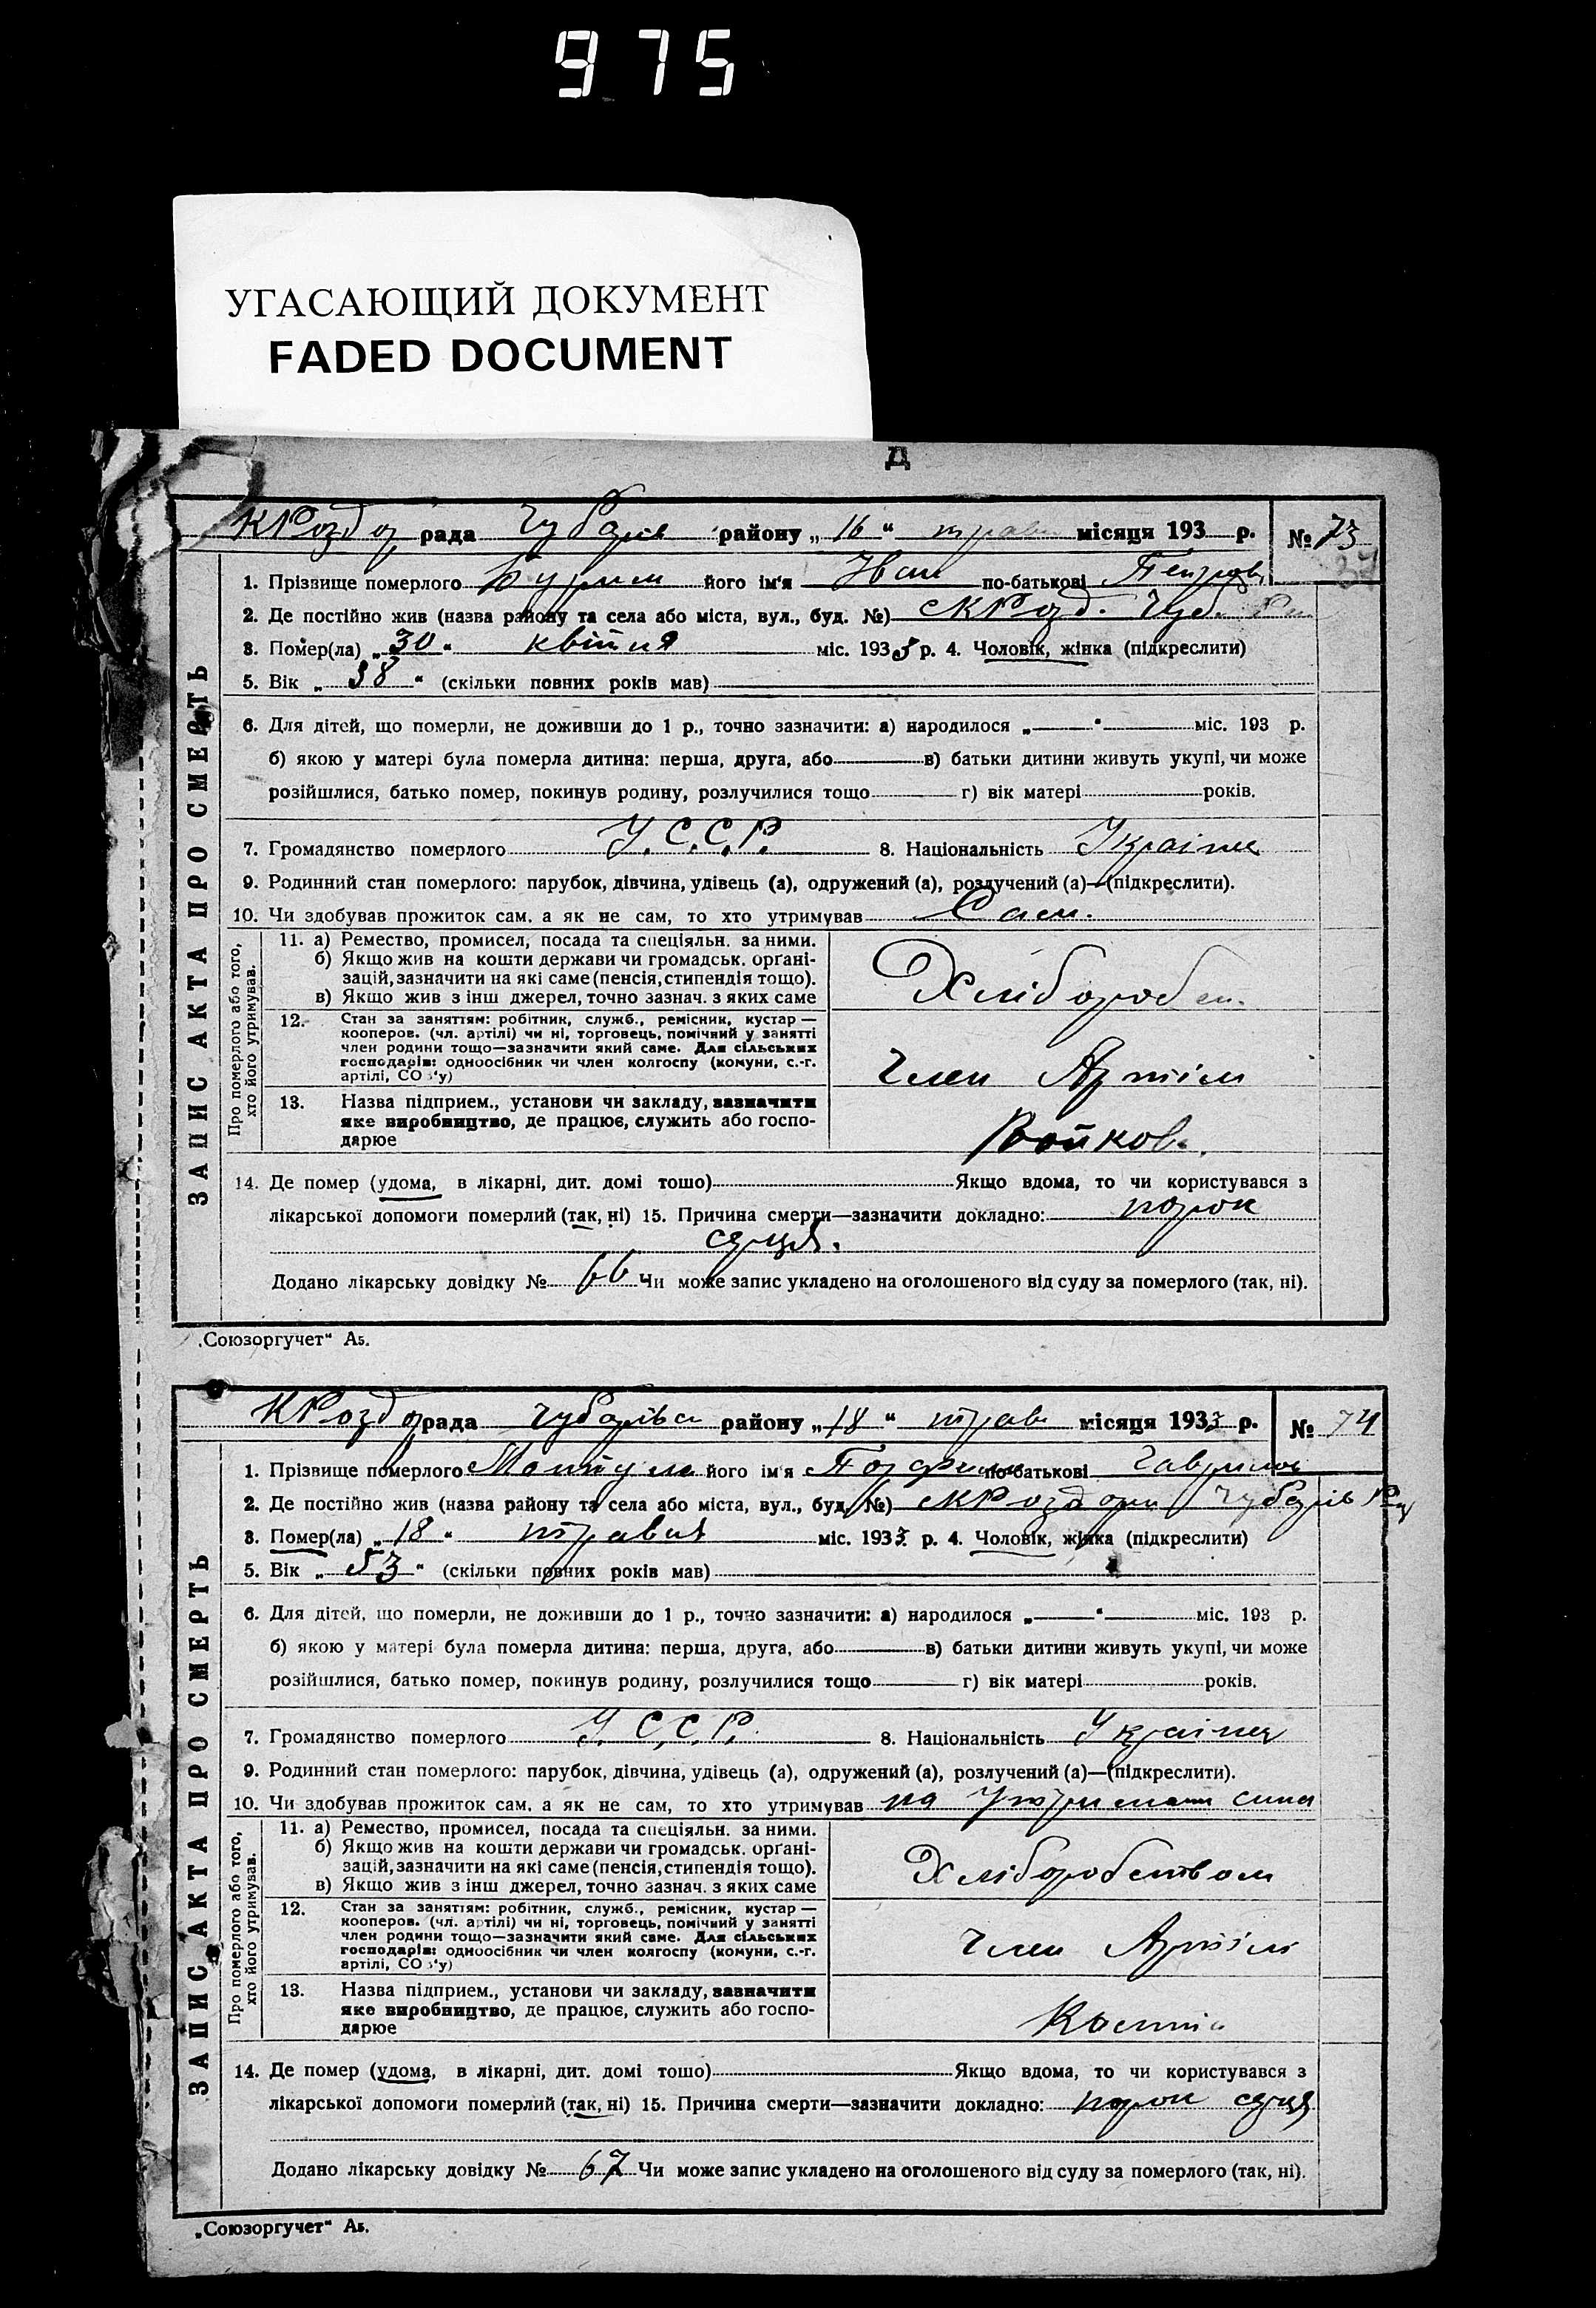 975
УГАСАЮЩИЙ ДОКУМЕНТ
FADED DOCUMENT
Д
ЗАПИС АКТА ПРО СМЕРТЬ
КРоздор рада Чубарів району „16“ трав місяця 193 р. № 73
37
1. Прізвище померлого його ім'я Иван по-батькові Петров
2. Де постійно жив (назва району та села або міста, вул., буд. №) с КРозд. Чуб. Р
3. Помер(ла) „30“ квітня міс. 1933 р. 4. Чоловік, жінка (підкреслити)
5. Вік „38“ (скільки повних років мав)
6. Для дітей, що померли, не доживши до 1 р., точно зазначити: а) народилося „—“ міс. 193 р.
б) якою у матері була померла дитина: перша, друга, або в) батьки дитини живуть укупі, чи може
розійшлися, батько помер, покинув родину, розлучилися тощо г) вік матері років.
7. Громадянство померлого У.С.С.Р. 8. Національність Українец
9. Родинний стан померлого: парубок, дівчина, удівець (а), одружений (а), розлучений (а)—(підкреслити).
10. Чи здобував прожиток сам, а як не сам, то хто утримував Сам.
Про померлого або того, хто його утримував.
11. а) Ремество, промисел, посада та спеціяльн. за ними.
б) Якщо жив на кошти держави чи громадськ. орґані-
зацій, зазначити на які саме (пенсія, стипендія тощо).
в) Якщо жив з інш джерел, точно зазнач. з яких саме
Хлібороб
12. Стан за заняттям: робітник, служб., ремісник, кустар —
кооперов. (чл. артілі) чи ні, торговець, помічний у занятті
член родини тощо—зазначити який саме. Для сільських
господарів: одноосібник чи член колгоспу (комуни, с.-г.
артілі, СО 'у)
Член Артіли
13. Назва підприєм., установи чи закладу, зазначити
яке виробництво, де працює, служить або госпо-
дарює
Войков.
14. Де помер (удома, в лікарні, дит. домі тощо) Якщо вдома, то чи користувався з
лікарської допомоги померлий (так, ні) 15. Причина смерти—зазначити докладно: порок
серця.
Додано лікарську довідку № 66 Чи може запис укладено на оголошеного від суду за померлого (так, ні).
„Союзоргучет“ А5.
ЗАПИС АКТА ПРО СМЕРТЬ
КРоздор рада Чубарівс району „18“ трав місяця 1933 р. № 74
1. Прізвище померлого його ім'я по-батькові Гаврилов
2. Де постійно жив (назва району та села або міста, вул., буд. №) с КРоздори Чубарів Р
3. Помер(ла) „18“ травня міс. 1933 р. 4. Чоловік, жінка (підкреслити)
5. Вік „53“ (скільки повних років мав)
6. Для дітей, що померли, не доживши до 1 р., точно зазначити: а) народилося „—“ міс. 193 р.
б) якою у матері була померла дитина: перша, друга, або в) батьки дитини живуть укупі, чи може
розійшлися, батько помер, покинув родину, розлучилися тощо г) вік матері років.
7. Громадянство померлого У.С.С.Р. 8. Національність Українец
9. Родинний стан померлого: парубок, дівчина, удівець (а), одружений (а), розлучений (а)—(підкреслити).
10. Чи здобував прожиток сам, а як не сам, то хто утримував на Утримани сина
Про померлого або того, хто його утримував.
11. а) Ремество, промисел, посада та спеціяльн. за ними.
б) Якщо жив на кошти держави чи громадськ. орґані-
зацій, зазначити на які саме (пенсія, стипендія тощо).
в) Якщо жив з інш джерел, точно зазнач. з яких саме
Хліборобством
12. Стан за заняттям: робітник, служб., ремісник, кустар —
кооперов. (чл. артілі) чи ні, торговець, помічний у занятті
член родини тощо—зазначити який саме. Для сільських
господарів: одноосібник чи член колгоспу (комуни, с.-г.
артілі, СО 'у)
Член Артіли
13. Назва підприєм., установи чи закладу, зазначити
яке виробництво, де працює, служить або госпо-
дарює
14. Де помер (удома, в лікарні, дит. домі тощо) Якщо вдома, то чи користувався з
лікарської допомоги померлий (так, ні) 15. Причина смерти—зазначити докладно: порок серця
Додано лікарську довідку № 67 Чи може запис укладено на оголошеного від суду за померлого (так, ні).
„Союзоргучет“ А5.